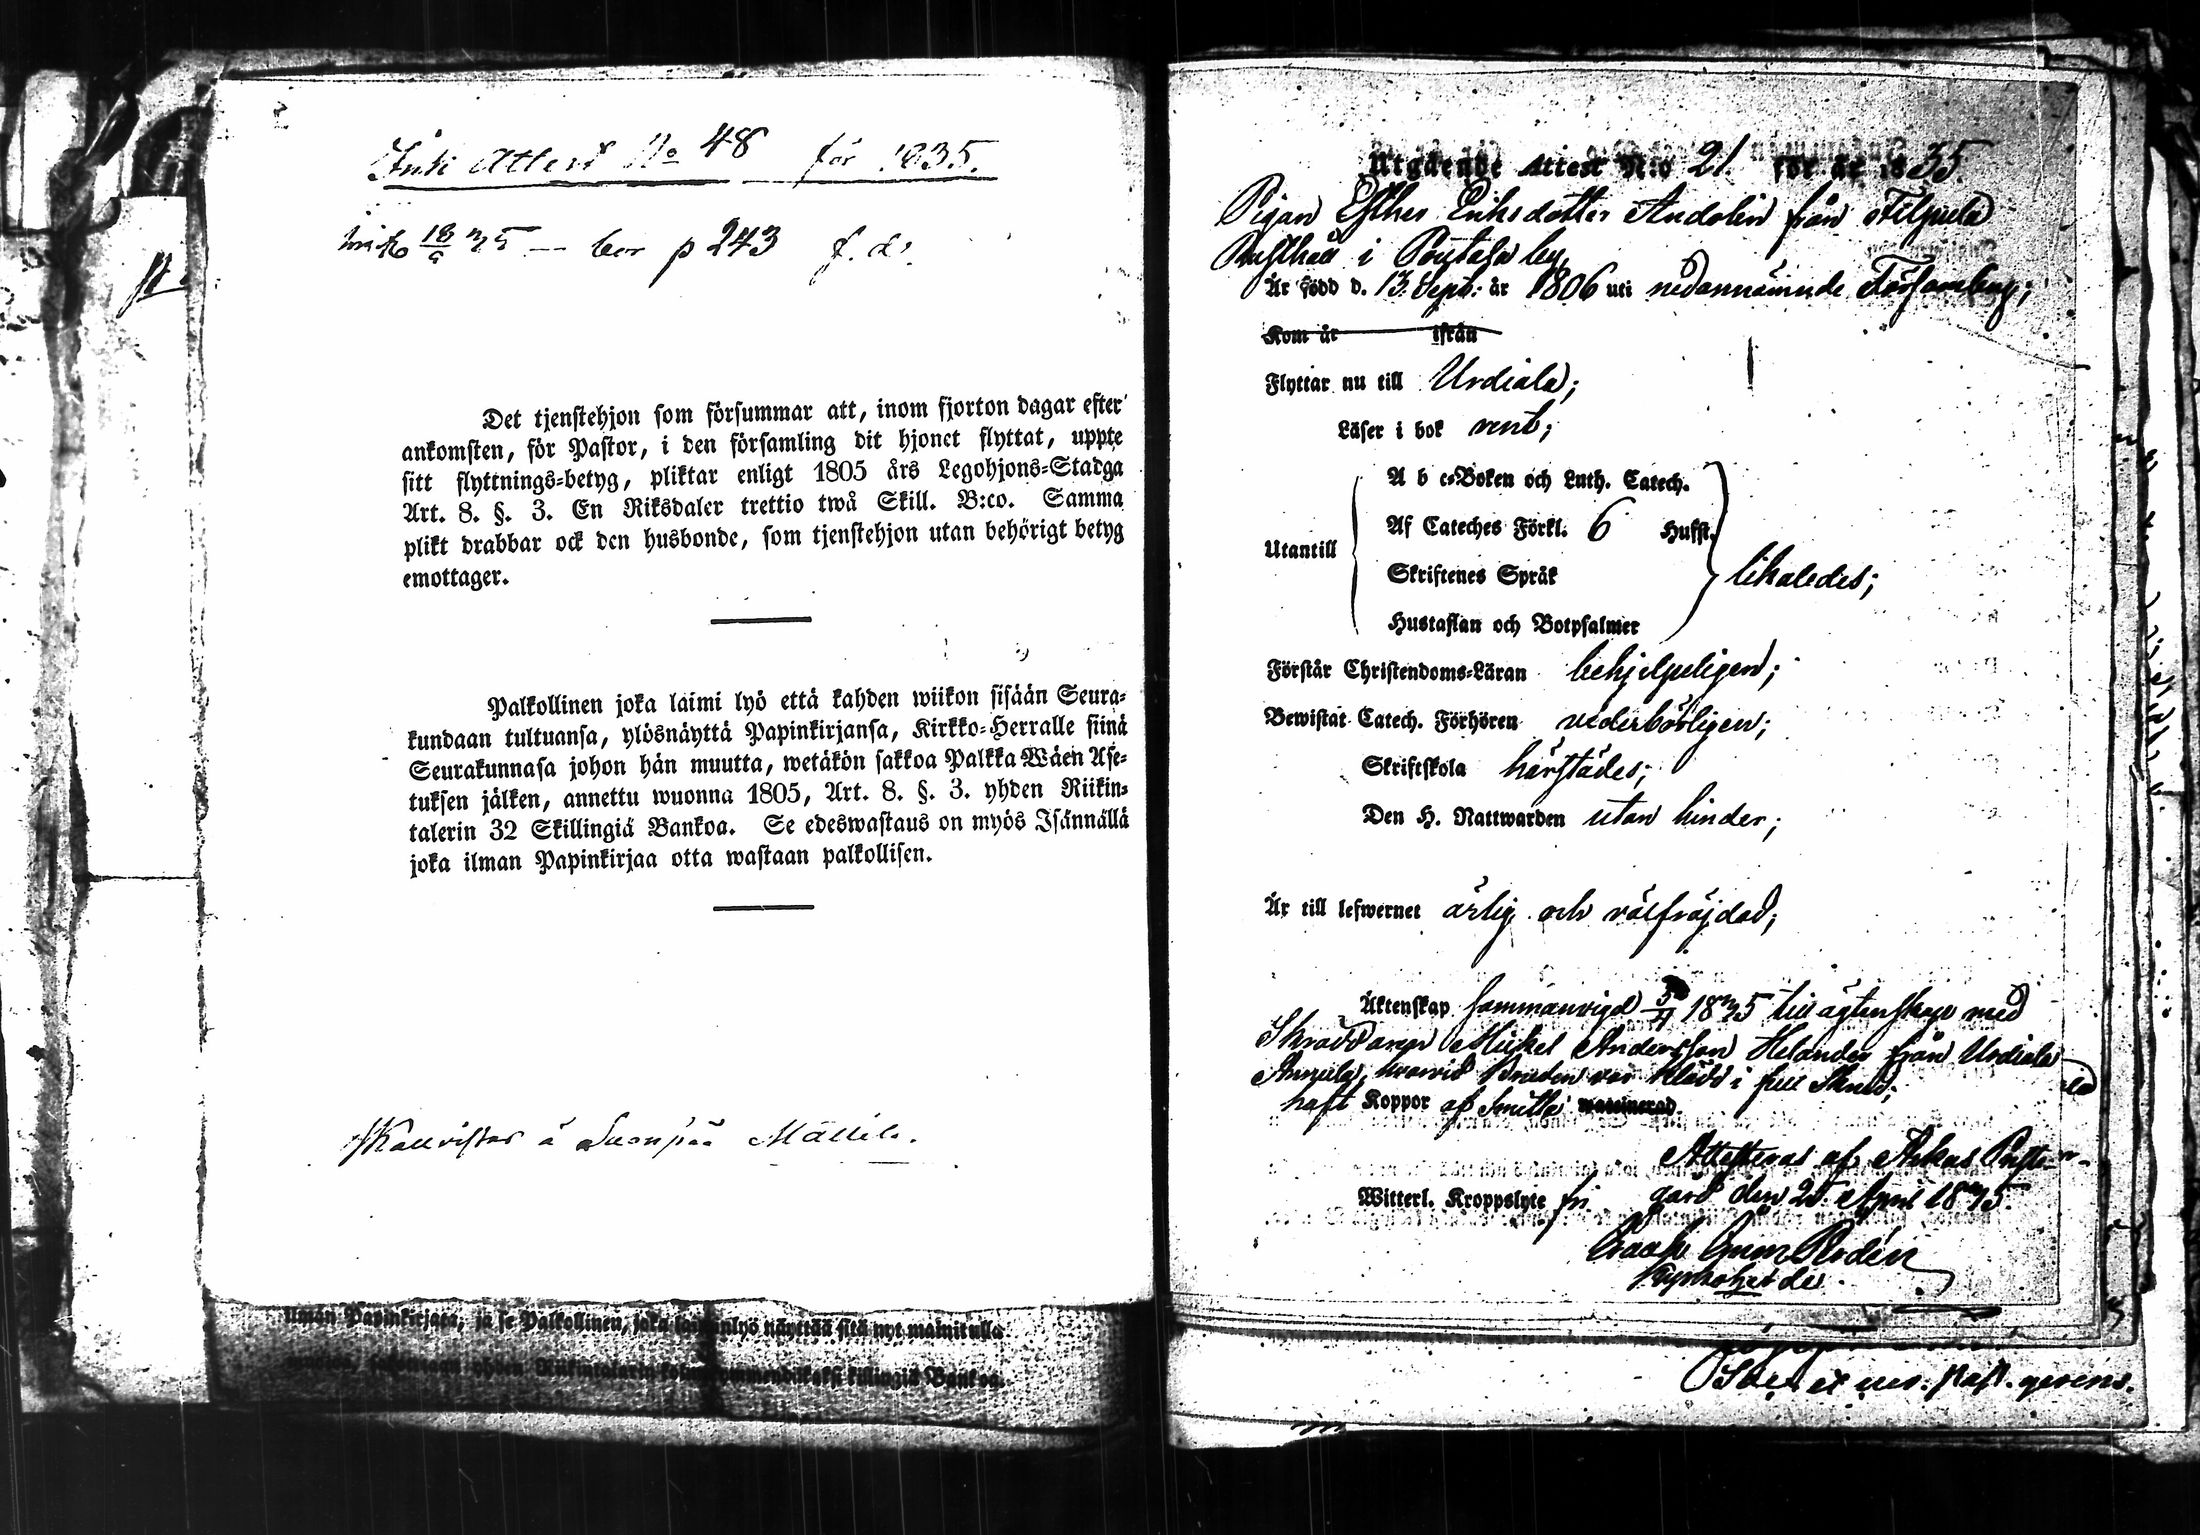 Attest No 48 för 1835.
18/6 35 — bor p 243 f. d.
Det tjenstehjon som försummar att, inom fjorton dagar efter
ankomsten, för Pastor, i den församling dit hjonet flyttat, uppte
sitt flyttnings-betyg, pliktar enligt 1805 års Legohjons-Stadga
Art. 8. §. 3. En Riksdaler trettio twå Skill. B:co. Samma
plikt drabbar ock den husbonde, som tjenstehjon utan behörigt betyg
emottager.
Palkollinen joka laimi lyö että kahden wiikon sisään Seura-
kundaan tultuansa, ylösnäyttä Papinkirjansa, Kirkko-Herralle siinä
Seurakunnasa johon hän muutta, wetäkön sakkoa Palkka Wäen Ase-
tuksen jälken, annettu wuonna 1805, Art. 8. §. 3. yhden Riikin-
talerin 32 Skillingiä Bankoa. Se edeswastaus on myös Isännällä
joka ilman Papinkirjaa otta wastaan palkollisen.
á
ilman Papinkirjata, ja se Palkollinen, joka laiminlyö näyttää sitä nyt mainitulla
yhden Riikintalerin kolmekymmendäkaksi killingiä Bankoa.
Utgående Attest N:o 21. för år 1835.
Pigan Esther Eriksdotter Andelin från Filpula
Rusthåll i by
Är född d. 13. Sept: år 1806 uti nedannämnde Församling;
Kom år ifrån
Flyttar nu till Urdiala;
Läser i bok rent;
A b c-Boken och Luth. Catech.
Af Cateches Förkl. 6 Hufst.
Utantill
Skriftenes Språk likaledes;
Hustaflan och Botpsalmer
Förstår Christendoms-Läran behjelpeligen;
Bewistat Catech. Förhören vederbörligen;
Skriftskola härstädes;
Den H. Nattwarden utan hinder;
Är till lefwernet ärlig och välfräjdad;
Äktenskap sammanvigd 5/4 1835 till ägtenskap med
Skräddaren Mickel Andersson Helander från Urdiala
Annula, hvarvid Bruden var klädd i full Skrud;
haft Koppor af Smitta waccinerad.
Attesteras af Akas Prste-
Witterl. Kroppslyte fri gård den 25. April 1835.
Isaak Gum. Rodén
Kyrkoherde.
past. gerens.